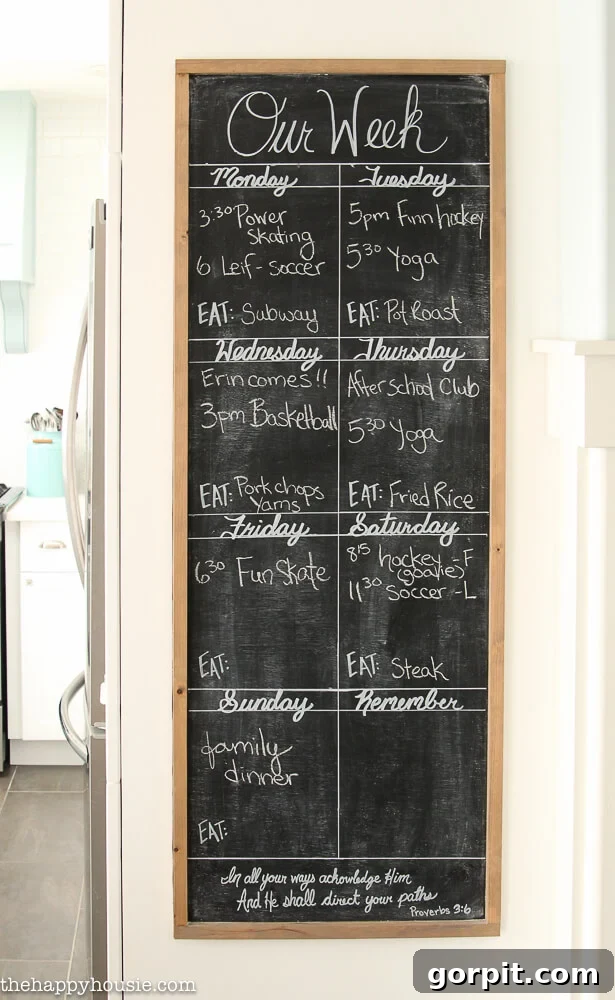 Our Week
Monday
3:30 Power
Skating
6 Leif - soccer
EAT: Subway
Tuesday
5pm Finn hockey
5 30 Yoga
EAT: Pot Roast
Wednesday
Erin comes!!
3pm Basketball
EAT: Pork chops
Yams
Thursday
After school Club
5 30 Yoga
EAT: Fried Rice
Friday
6 30 Fun Skate
EAT:
Saturday
8 15 hockey - F
(goalie)
11 30 Soccer - L
EAT: Steak
Sunday
family
dinner
EAT:
Remember
In all your ways acknowledge Him
And He shall direct your paths
Proverbs 3:6
thehappyhousie.com
gorpit.com